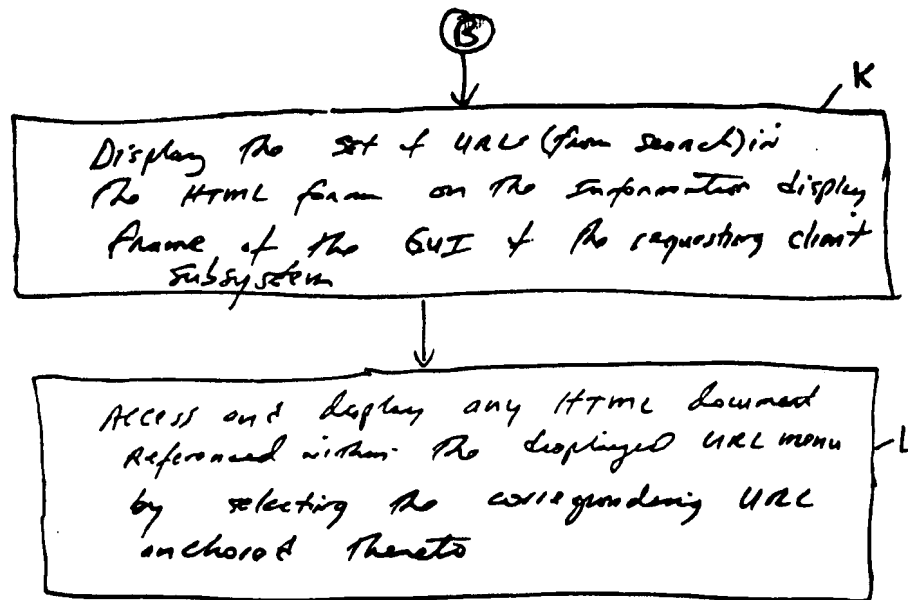 B
K
Display the set of URLs (from search) in
the HTML form on the Information display
frame of the GUI of the requesting client
subsystem
Access and display any HTML document
referenced within the displayed URL menu
by selecting the corresponding URL
anchored thereto
L